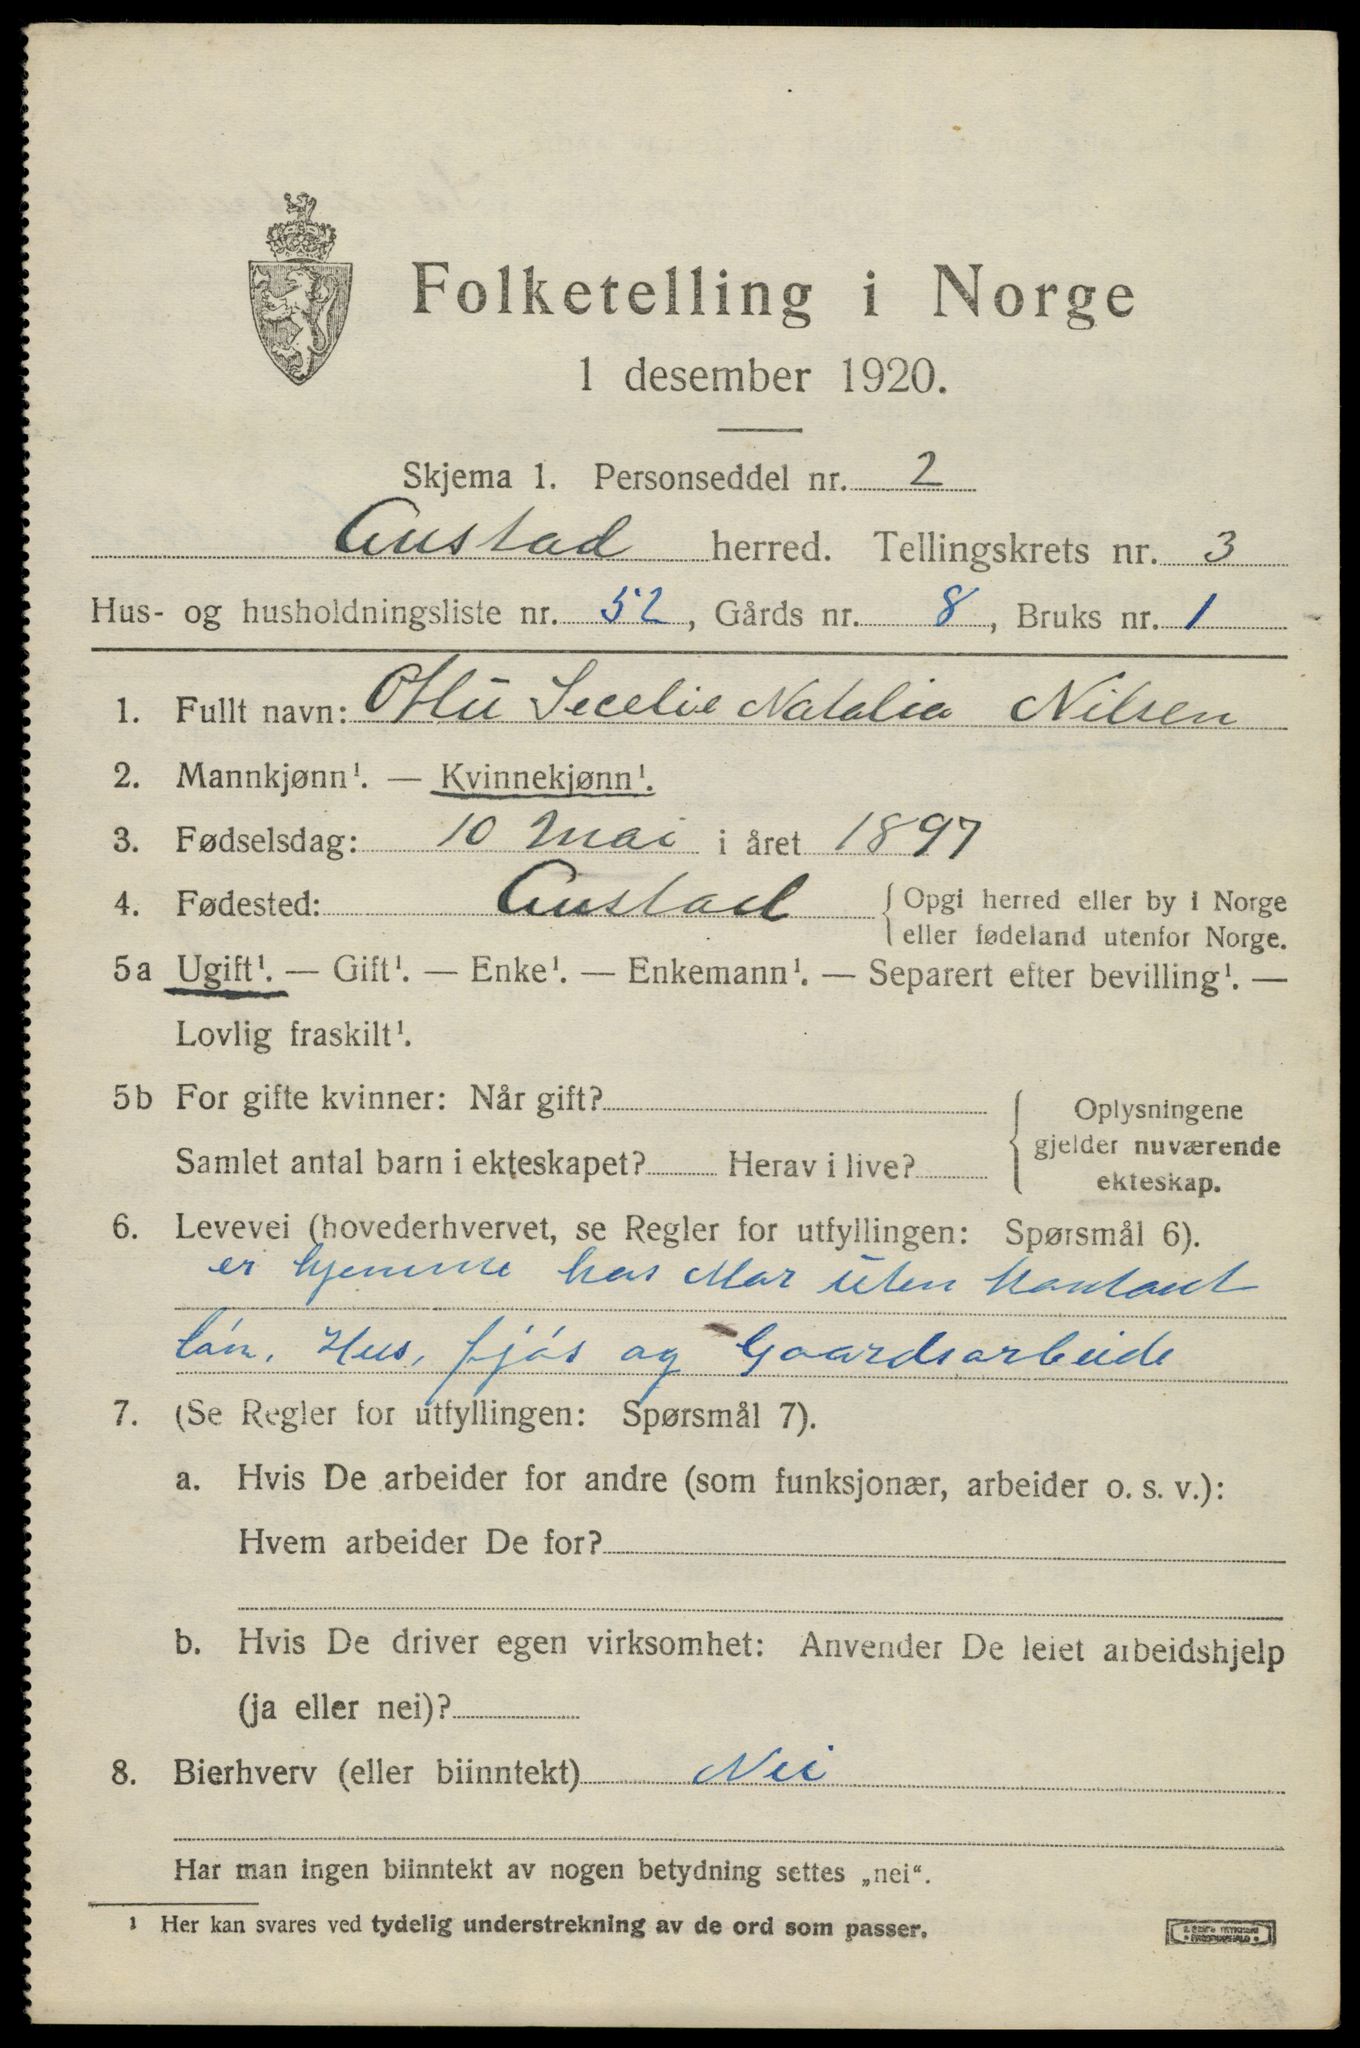 Folketelling i Norge
1 desember 1920.
Skjema 1. Personseddel nr. 2
herred. Tellingskrets nr. 3
Hus- og husholdningsliste nr. 52, Gårds nr. 8, Bruks nr. 1
1. Fullt navn: Secelie Natalia Nilsen
2. Mannkjønn¹. — Kvinnekjønn¹.
3. Fødselsdag: 10 Mai i året 1897
4. Fødested: { Opgi herred eller by i Norge
eller fødeland utenfor Norge.
5a Ugift¹. — Gift¹. — Enke¹. — Enkemann¹. — Separert efter bevilling¹. —
Lovlig fraskilt¹.
5b For gifte kvinner: Når gift?
Samlet antal barn i ekteskapet? Herav i live?
{ Oplysningene
gjelder nuværende
ekteskap.
6. Levevei (hovederhvervet, se Regler for utfyllingen: Spørsmål 6).
er hjemme hos Mor uten Kontant
lón, Hus, fjós og Gaardsarbeide
7. (Se Regler for utfyllingen: Spørsmål 7).
a. Hvis De arbeider for andre (som funksjonær, arbeider o. s. v.):
Hvem arbeider De for?
b. Hvis De driver egen virksomhet: Anvender De leiet arbeidshjelp
(ja eller nei)?
8. Bierhverv (eller biinntekt) Nei
Har man ingen biinntekt av nogen betydning settes „nei“.
¹ Her kan svares ved tydelig understrekning av de ord som passer.